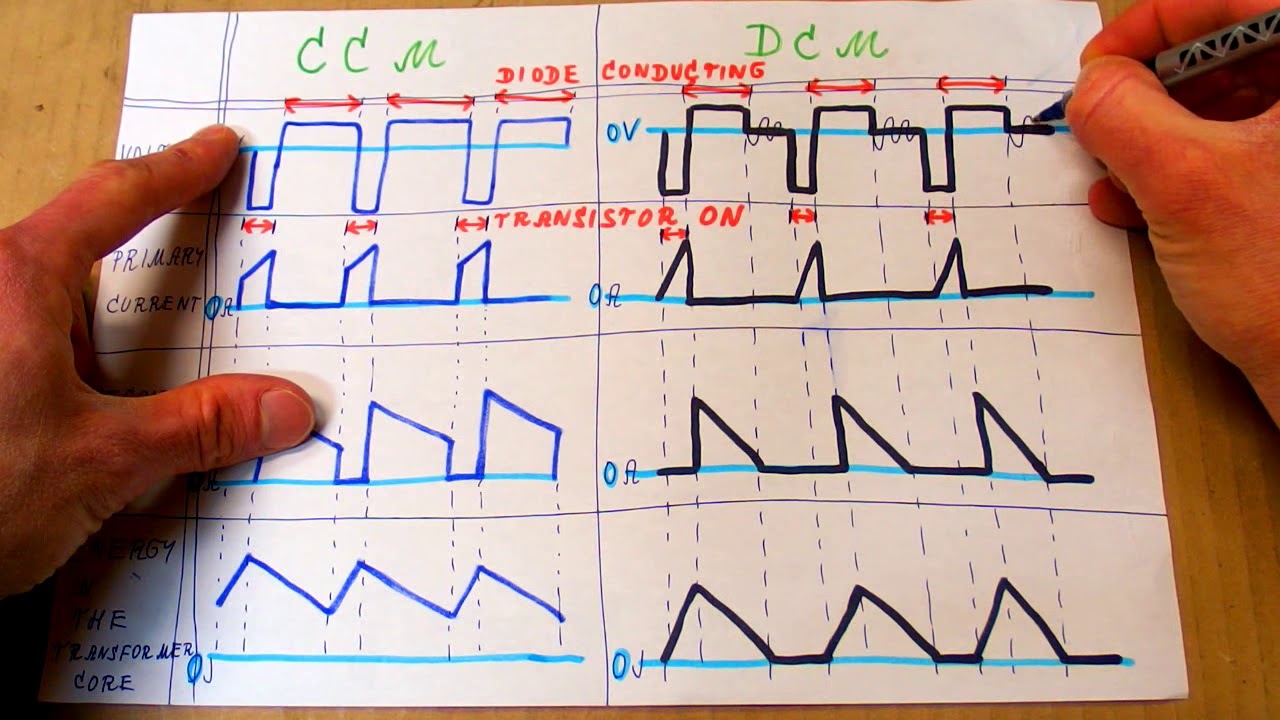 CCM
DCM
DIODE CONDUCTING
0V
TRANSISTOR ON
PRIMARY
CURRENT
0A
0A
0A
ENERGY
THE
TRANSFORMER
CORE
0J
0J